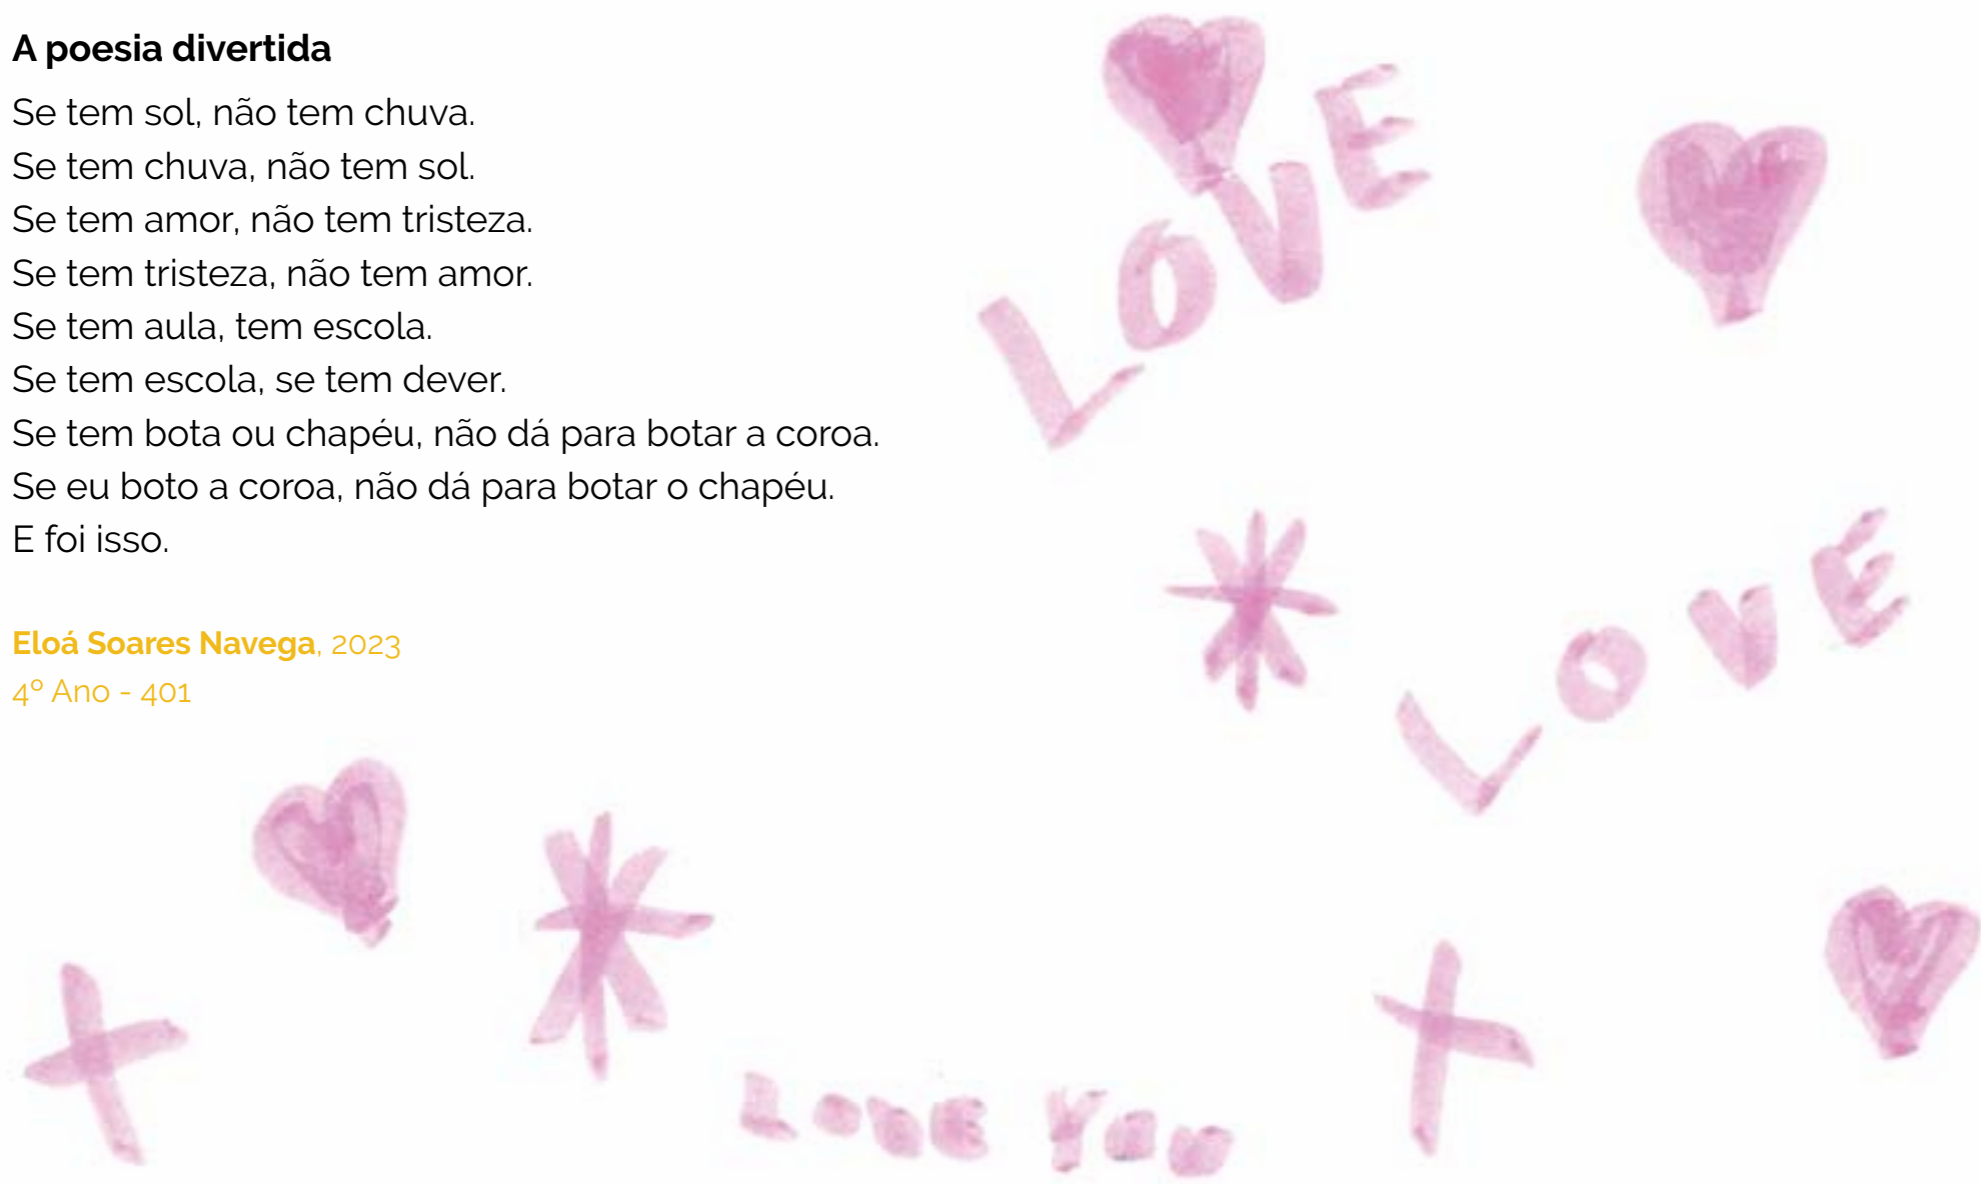 A poesia divertida
Se tem sol, não tem chuva.
Se tem chuva, não tem sol.
Se tem amor, não tem tristeza.
Se tem tristeza, não tem amor.
Se tem aula, tem escola.
Se tem escola, se tem dever.
Se tem bota ou chapéu, não dá para botar a coroa.
Se eu boto a coroa, não dá para botar o chapéu.
E foi isso.
Eloá Soares Navega, 2023
4º Ano - 401
LOVE
LOVE
LOVE YOU